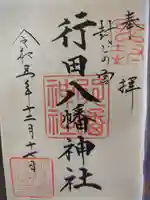 奉拝
封じの宮
行田八幡神社
令和五年十二月十七日